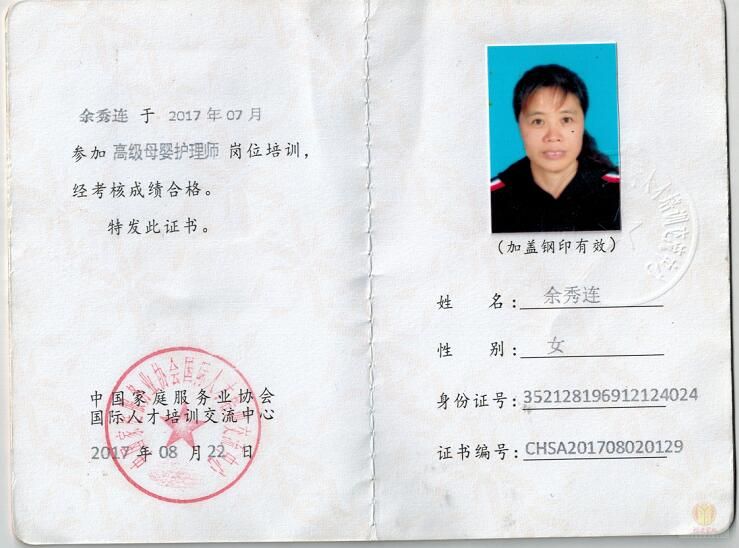 余秀连 于 2017 年 07 月
参加 高级母婴护理师 岗位培训，
经考核成绩合格。
特发此证书。
中国家庭服务业协会
国际人才培训交流中心
2017 年 08 月 22 日
（加盖钢印有效）
姓 名：余秀连
性 别：女
身份证号：352128196912124024
证书编号：CHSA201708020129